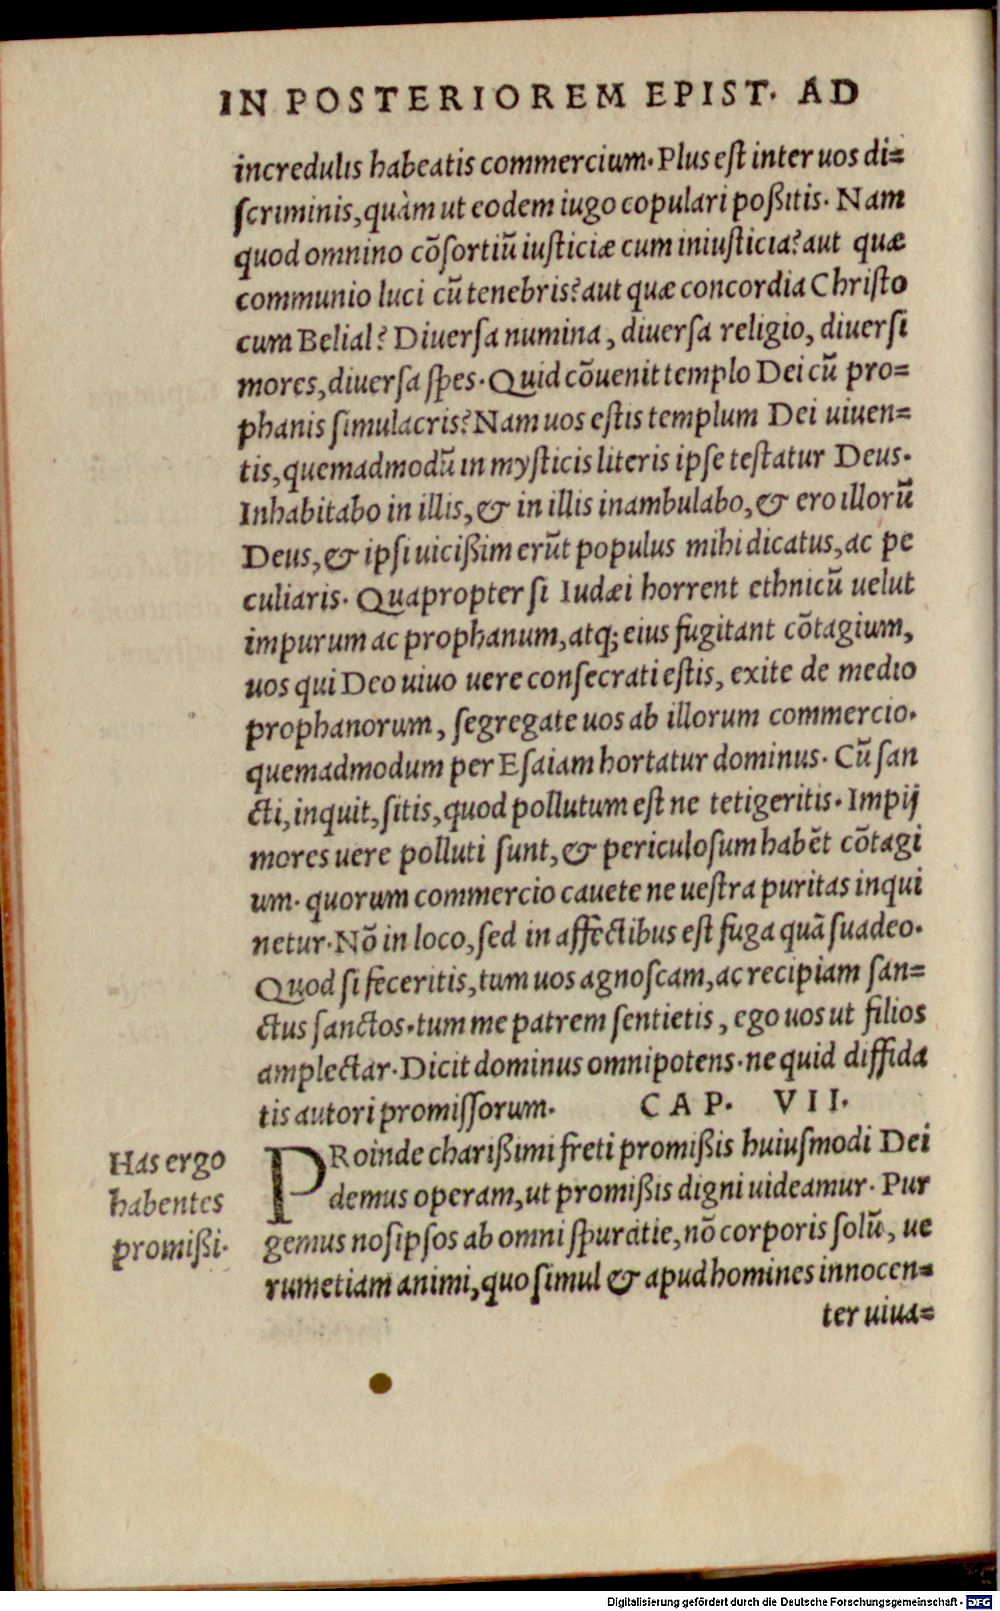 IN POSTERIOREM EPIST. AD
incredulis habeatis commercium. Plus est inter uos di=
scriminis, quàm ut eodem iugo copulari poßitis. Nam
quod omnino cõsortiũ iusticiæ cum iniusticia? aut quæ
communio luci cũ tenebris? aut quæ concordia Christo
cum Belial? Diuersa numina, diuersa religio, diuersi
mores, diuersa spes. Quid cõuenit templo Dei cũ pro=
phanis simulacris? Nam uos estis templum Dei uiuen=
tis, quemadmodũ in mysticis literis ipse testatur Deus.
Inhabitabo in illis, & in illis inambulabo, & ero illorũ
Deus, & ipsi uicißim erũt populus mihi dicatus, ac pe
culiaris. Quapropter si Iudæi horrent ethnicũ uelut
impurum ac prophanum, atq; eius fugitant cõtagium,
uos qui Deo uiuo uere consecrati estis, exite de medio
prophanorum, segregate uos ab illorum commercio.
quemadmodum per Esaiam hortatur dominus. Cũ san
cti, inquit, sitis, quod pollutum est ne tetigeritis. Impij
mores uere polluti sunt, & periculosum habẽt cõtagi
um. quorum commercio cauete ne uestra puritas inqui
netur. Nõ in loco, sed in affectibus est fuga quã suadeo.
Quod si feceritis, tum uos agnoscam, ac recipiam san=
ctus sanctos. tum me patrem sentietis, ego uos ut filios
amplectar. Dicit dominus omnipotens. ne quid diffida
tis autori promissorum. CAP. VII.
Has ergo
habentes
promißi.
PRoinde charißimi freti promißis huiusmodi Dei
demus operam, ut promißis digni uideamur. Pur
gemus nosipsos ab omni spuratie, nõ corporis solũ, ue
rumetiam animi, quo simul & apud homines innocen=
ter uiua=
Digitalisierung gefördert durch die Deutsche Forschungsgemeinschaft - DFG